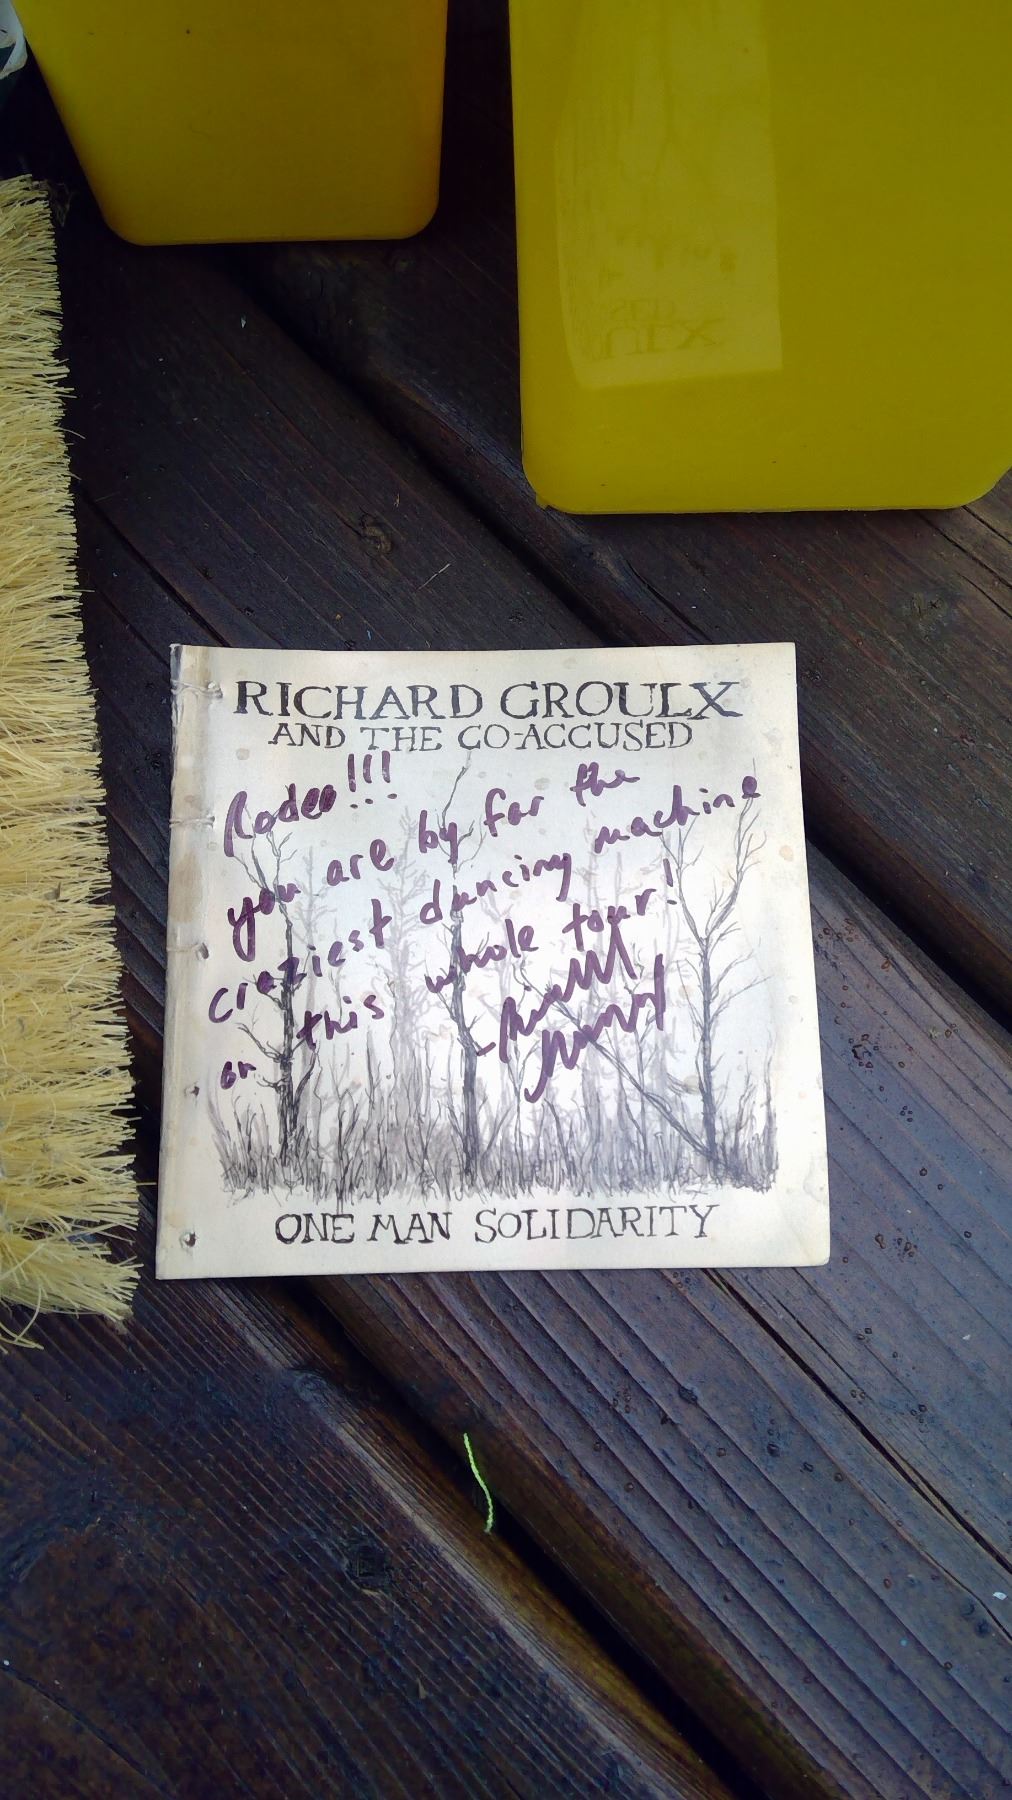 RICHARD GROULX
AND THE CO-ACCUSED
Rodeo!!!
you are by far the
craziest dancing machine
on this whole tour!
ONE MAN SOLIDARITY